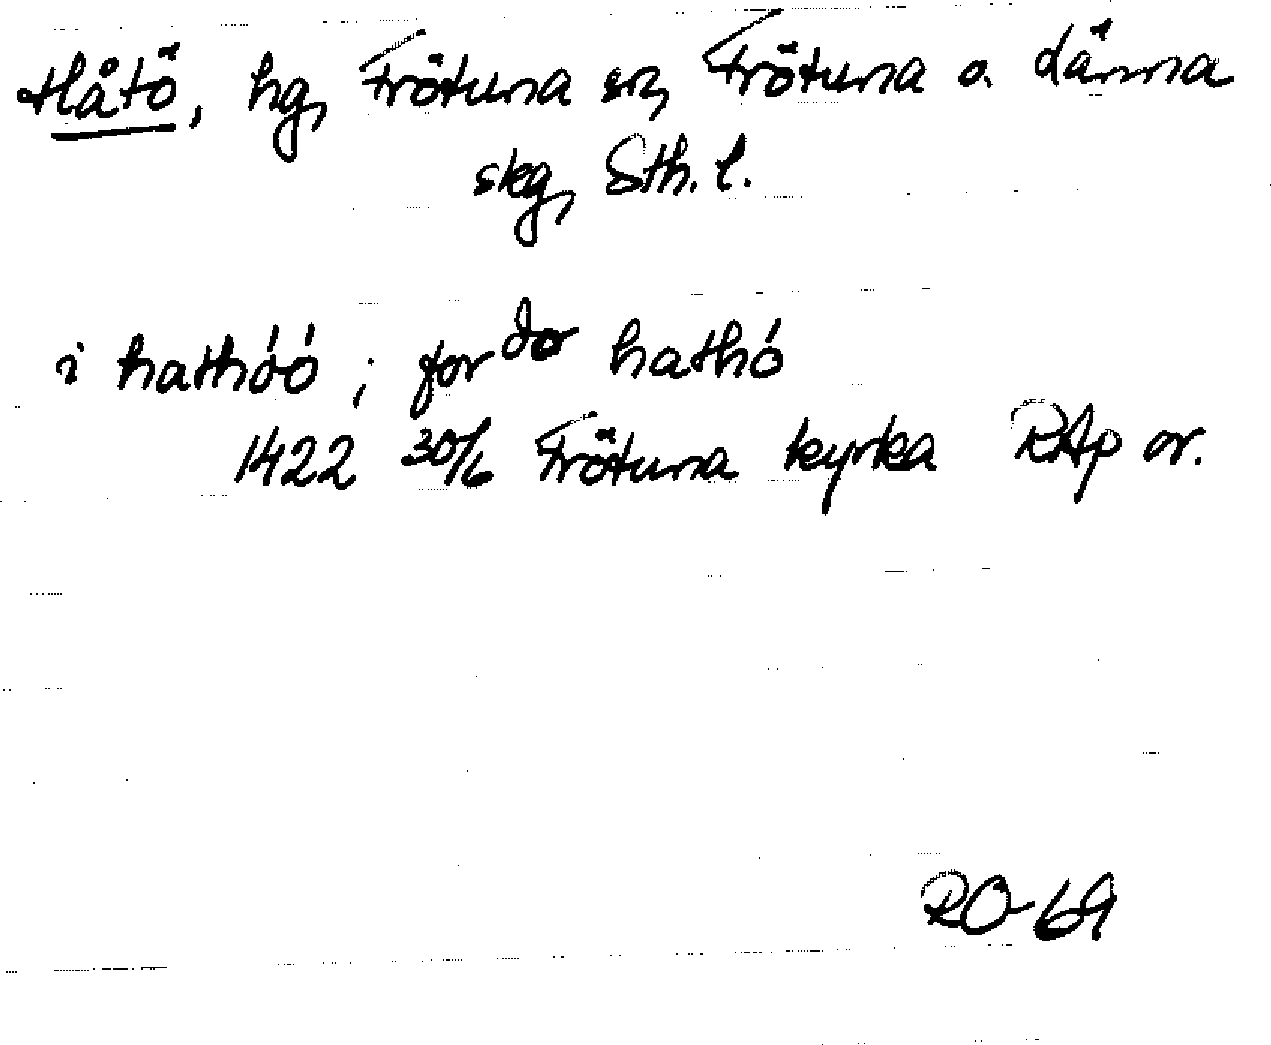 Håtö, hg, Frötuna sn, Frötuna o. Länna
skg, Sth. l.
i hathóó ; for do hathó
1422 30/6 Frötuna kyrka RAp or.
RO-69